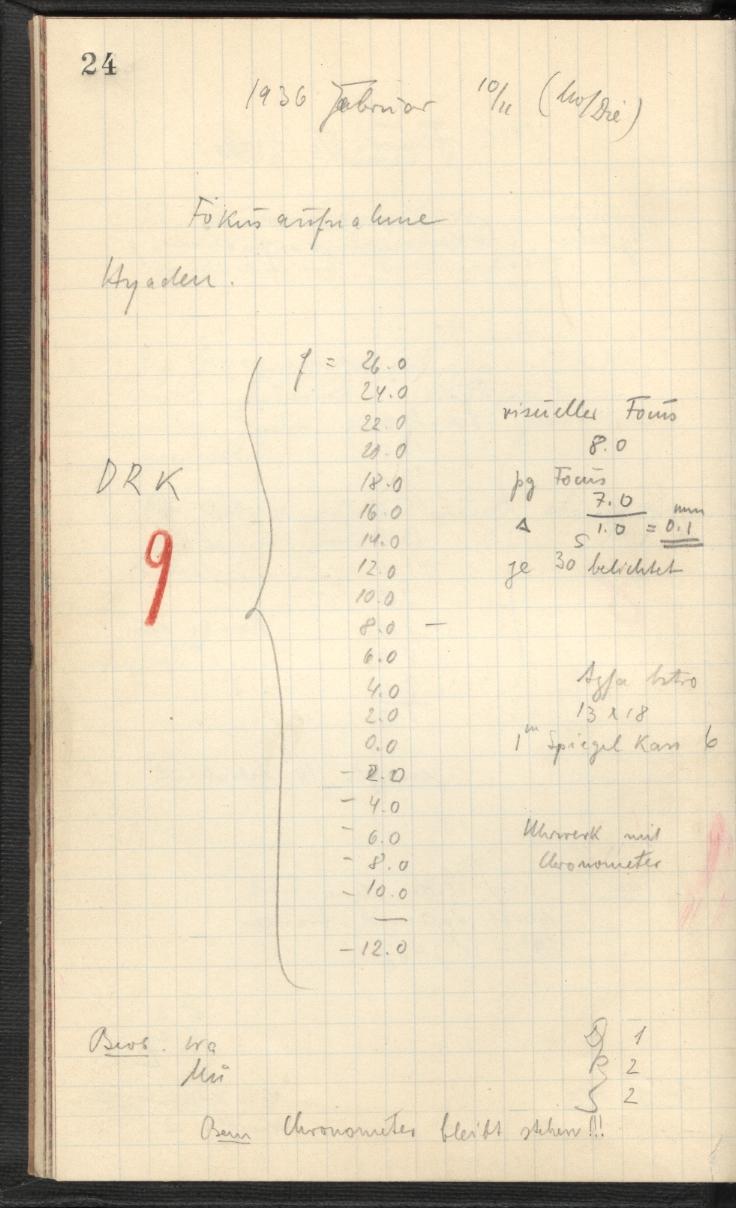 24
1936 Februar 10/11 (Mo/Die)
Fokusaufnahme
Hyaden.
f = 26.0
24.0
22.0
20.0
18.0
16.0
14.0
12.0
10.0
8.0 —
6.0
4.0
2.0
0.0
- 2.0
- 4.0
- 6.0
- 8.0
- 10.0
—
- 12.0
DRK
9
visueller Focus
8.0
pg Focus
7.0
Δ 1.0 = 0.1 mm
je 30 s belichtet
Agfa Astro
13 x 18
1 m Spiegel Kass 6
Uhrwerk mit
Chronometer
Beob. Wa
Mü
D 1
R 2
S 2
Bem Chronometer bleibt stehen!!!